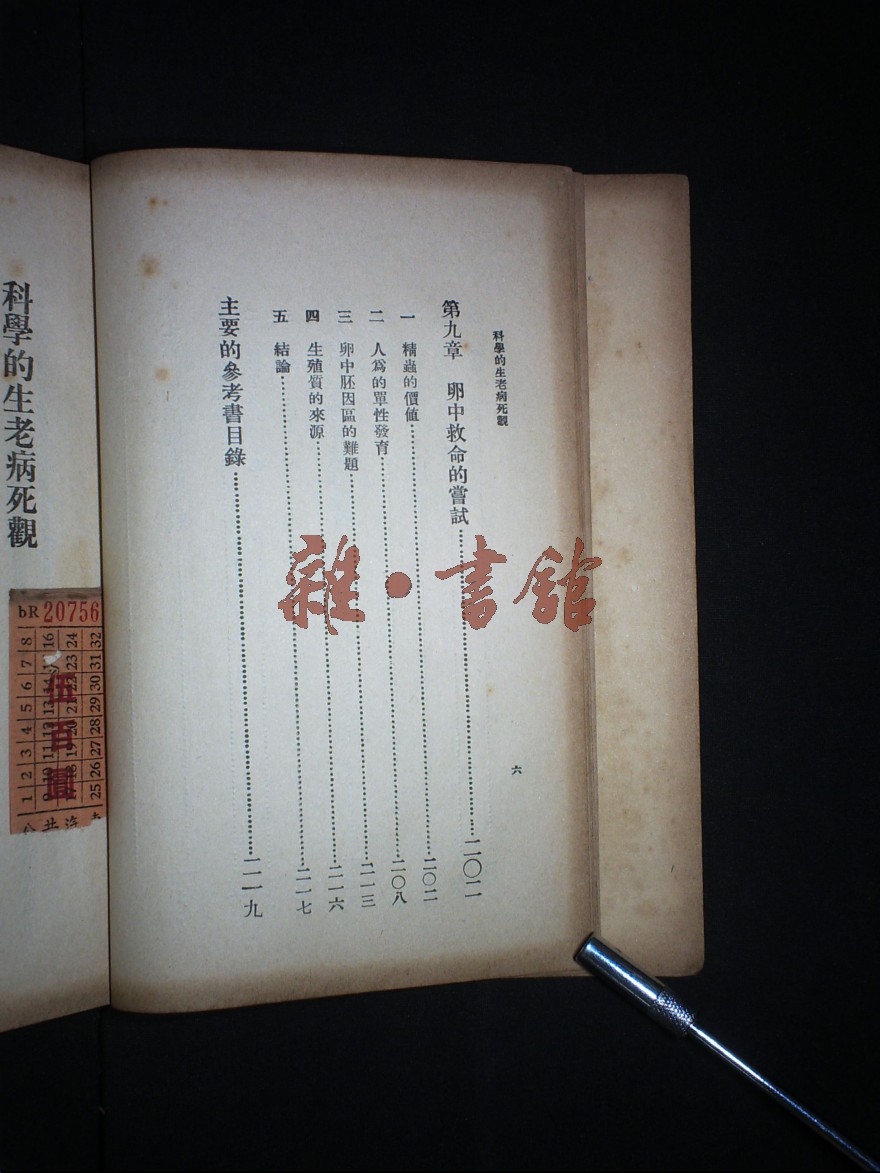 科學的生老病死觀
六
第九章 卵中救命的嘗試……二〇二
一 精蟲的價値……二〇二
二 人爲的單性發育……二〇八
三 卵中胚因區的難題……二一三
四 生殖質的來源……二一六
五 結論……二一七
主要的參考書目錄……二一九
科學的生老病死觀
bR 20756
伍百圓
1 2 3 4 5 6 7 8
25 26 27 28 29 30 31 32
雜·書館